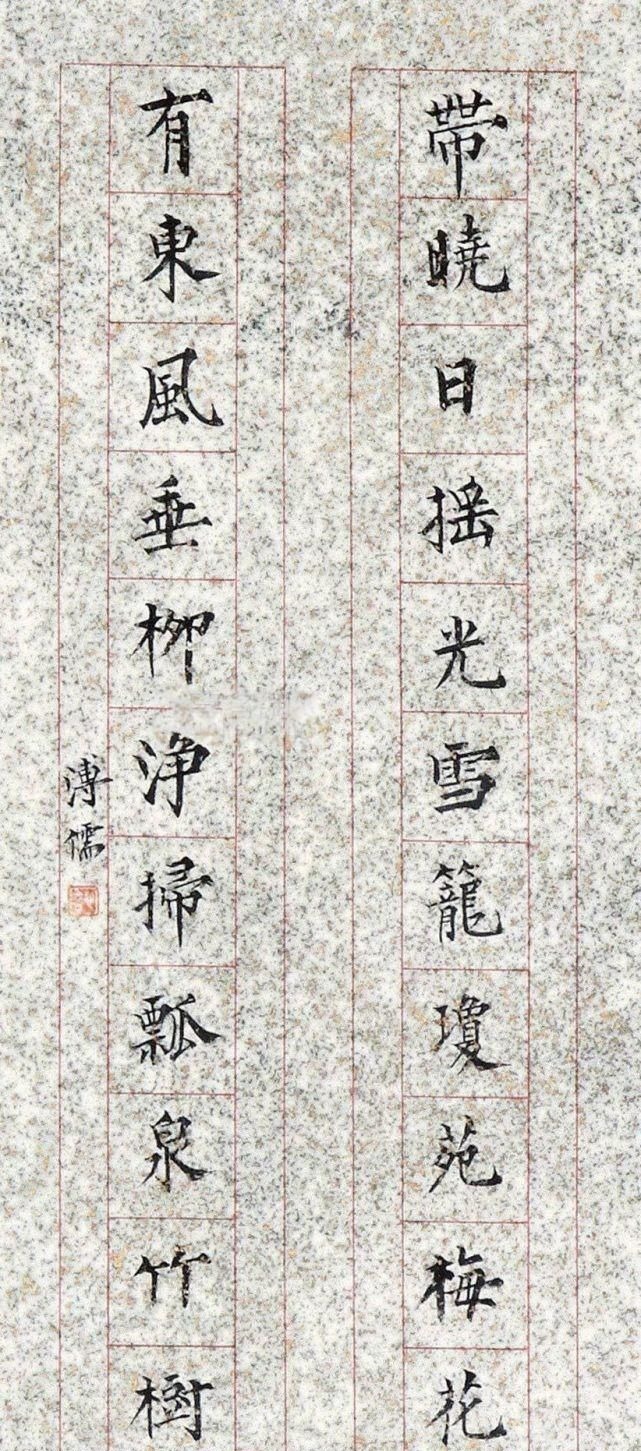 帶曉日搖光雪籠瓊苑梅花
有東風垂柳淨掃瓢泉竹樹
溥儒